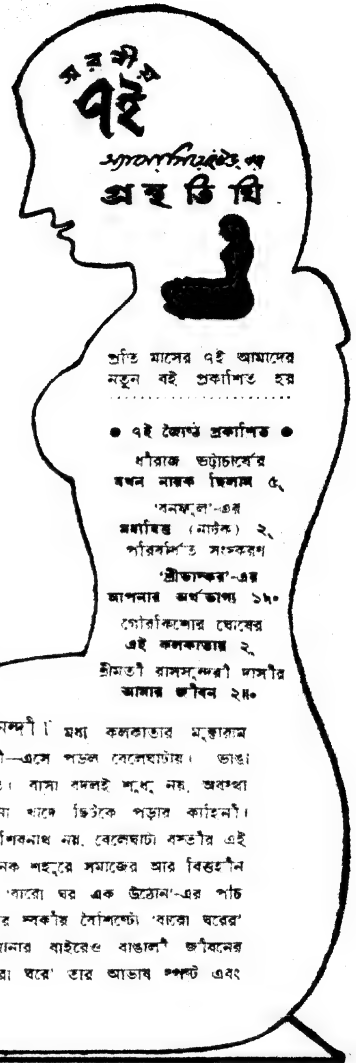 স্মরণীয়
৭ই
অ্যাসোসিয়েটেড-এর
গ্রন্থতিথি
প্রতি মাসের ৭ই আমাদের
নতুন বই প্রকাশিত হয়
● ৭ই জ্যৈষ্ঠ প্রকাশিত ●
ধীরাজ ভট্টাচার্যের
যখন নায়ক ছিলাম ৫৲
'বনফুল'-এর
মধ্যবিত্ত (নাটক) ২৲
পরিবর্ধিত সংস্করণ
'শ্রীভাস্কর'-এর
আপনার অর্থভাগ্য ১৸০
গৌরকিশোর ঘোষের
এই কলকাতায় ২৲
শ্রীমতী রাসসুন্দরী দাসীর
আমার জীবন ২॥০
নন্দী। মধ্য কলকাতার মুক্তারাম
ী—এসে পড়ল বেলেঘাটায়। ভাঙা
। বাসা বদলই শুধু নয়, অবস্থা
না খাদে ছিটকে পড়ার কাহিনী।
শিবনাথ নয়, বেলেঘাটা বস্তীর এই
নক শহুরে সমাজের আর বিত্তহীন
'বারো ঘর এক উঠোন'-এর পাঁচ
র স্বকীয় বৈশিষ্ট্যে 'বারো ঘরের'
ানার বাইরেও বাঙালী জীবনের
রা ঘরে' তার আভাষ স্পষ্ট এবং